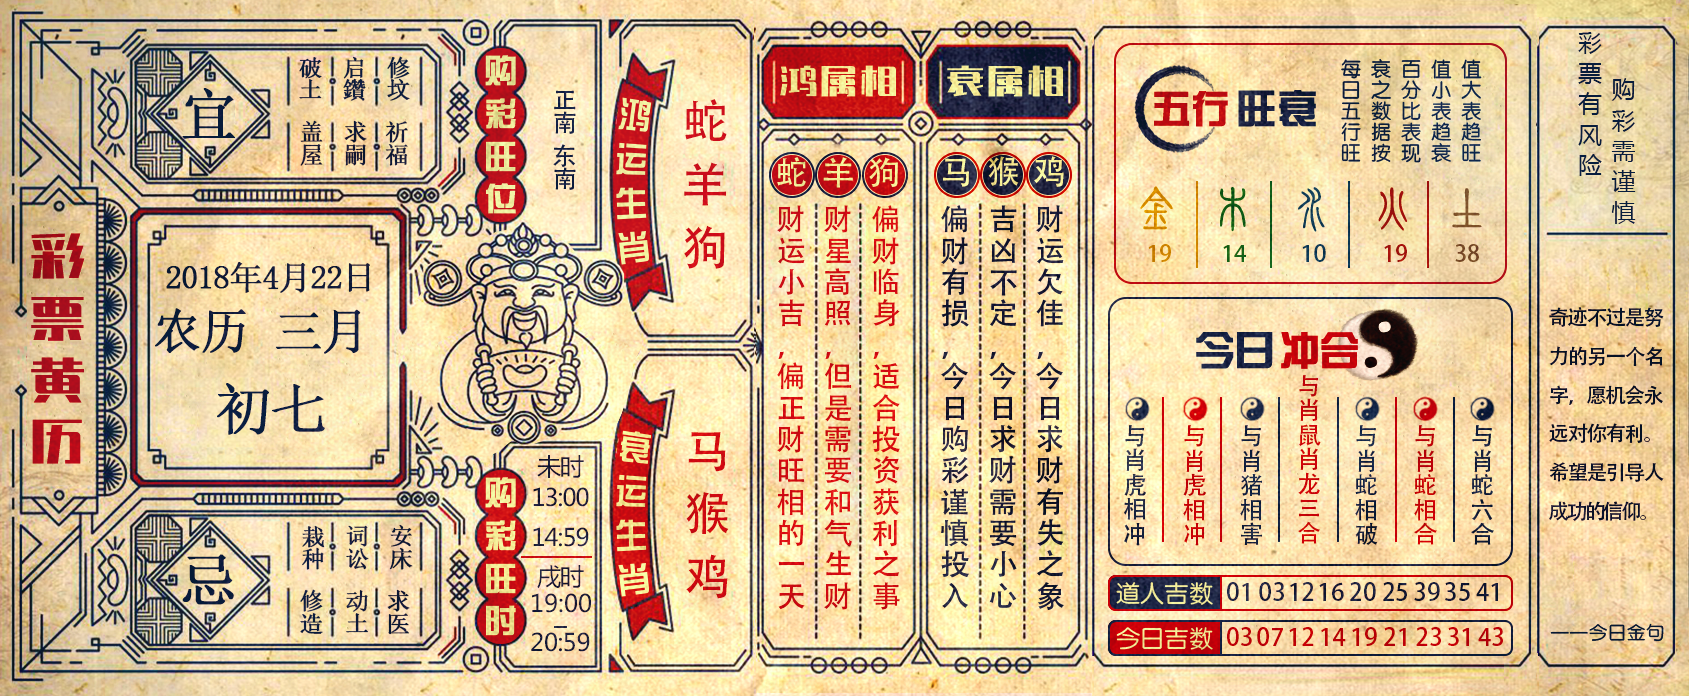 彩票黄历
宜
破土
启鑽
修坟
盖屋
求嗣
祈福
2018年4月22日
农历 三月
初七
忌
栽种
词讼
安床
修造
动土
求医
购彩旺位
正南 东南
购彩旺时
未时
13:00
14:59
戌时
19:00
–
20:59
鸿运生肖
蛇羊狗
衰运生肖
马猴鸡
鸿属相
蛇
财运小吉，偏正财旺相的一天
羊
财星高照，但是需要和气生财
狗
偏财临身，适合投资获利之事
衰属相
马
偏财有损，今日购彩谨慎投入
猴
吉凶不定，今日求财需要小心
鸡
财运欠佳，今日求财有失之象
五行旺衰
每日五行旺
衰之数据按
百分比表现
值小表趋衰
值大表趋旺
金 木 水 火 土
19 14 10 19 38
今日冲合
与肖虎相冲
与肖虎相冲
与肖猪相害
与肖鼠肖龙三合
与肖蛇相破
与肖蛇相合
与肖蛇六合
道人吉数 01 03 12 16 20 25 39 35 41
今日吉数 03 07 12 14 19 21 23 31 43
彩票有风险
购彩需谨慎
奇迹不过是努
力的另一个名
字，愿机会永
远对你有利。
希望是引导人
成功的信仰。
——今日金句